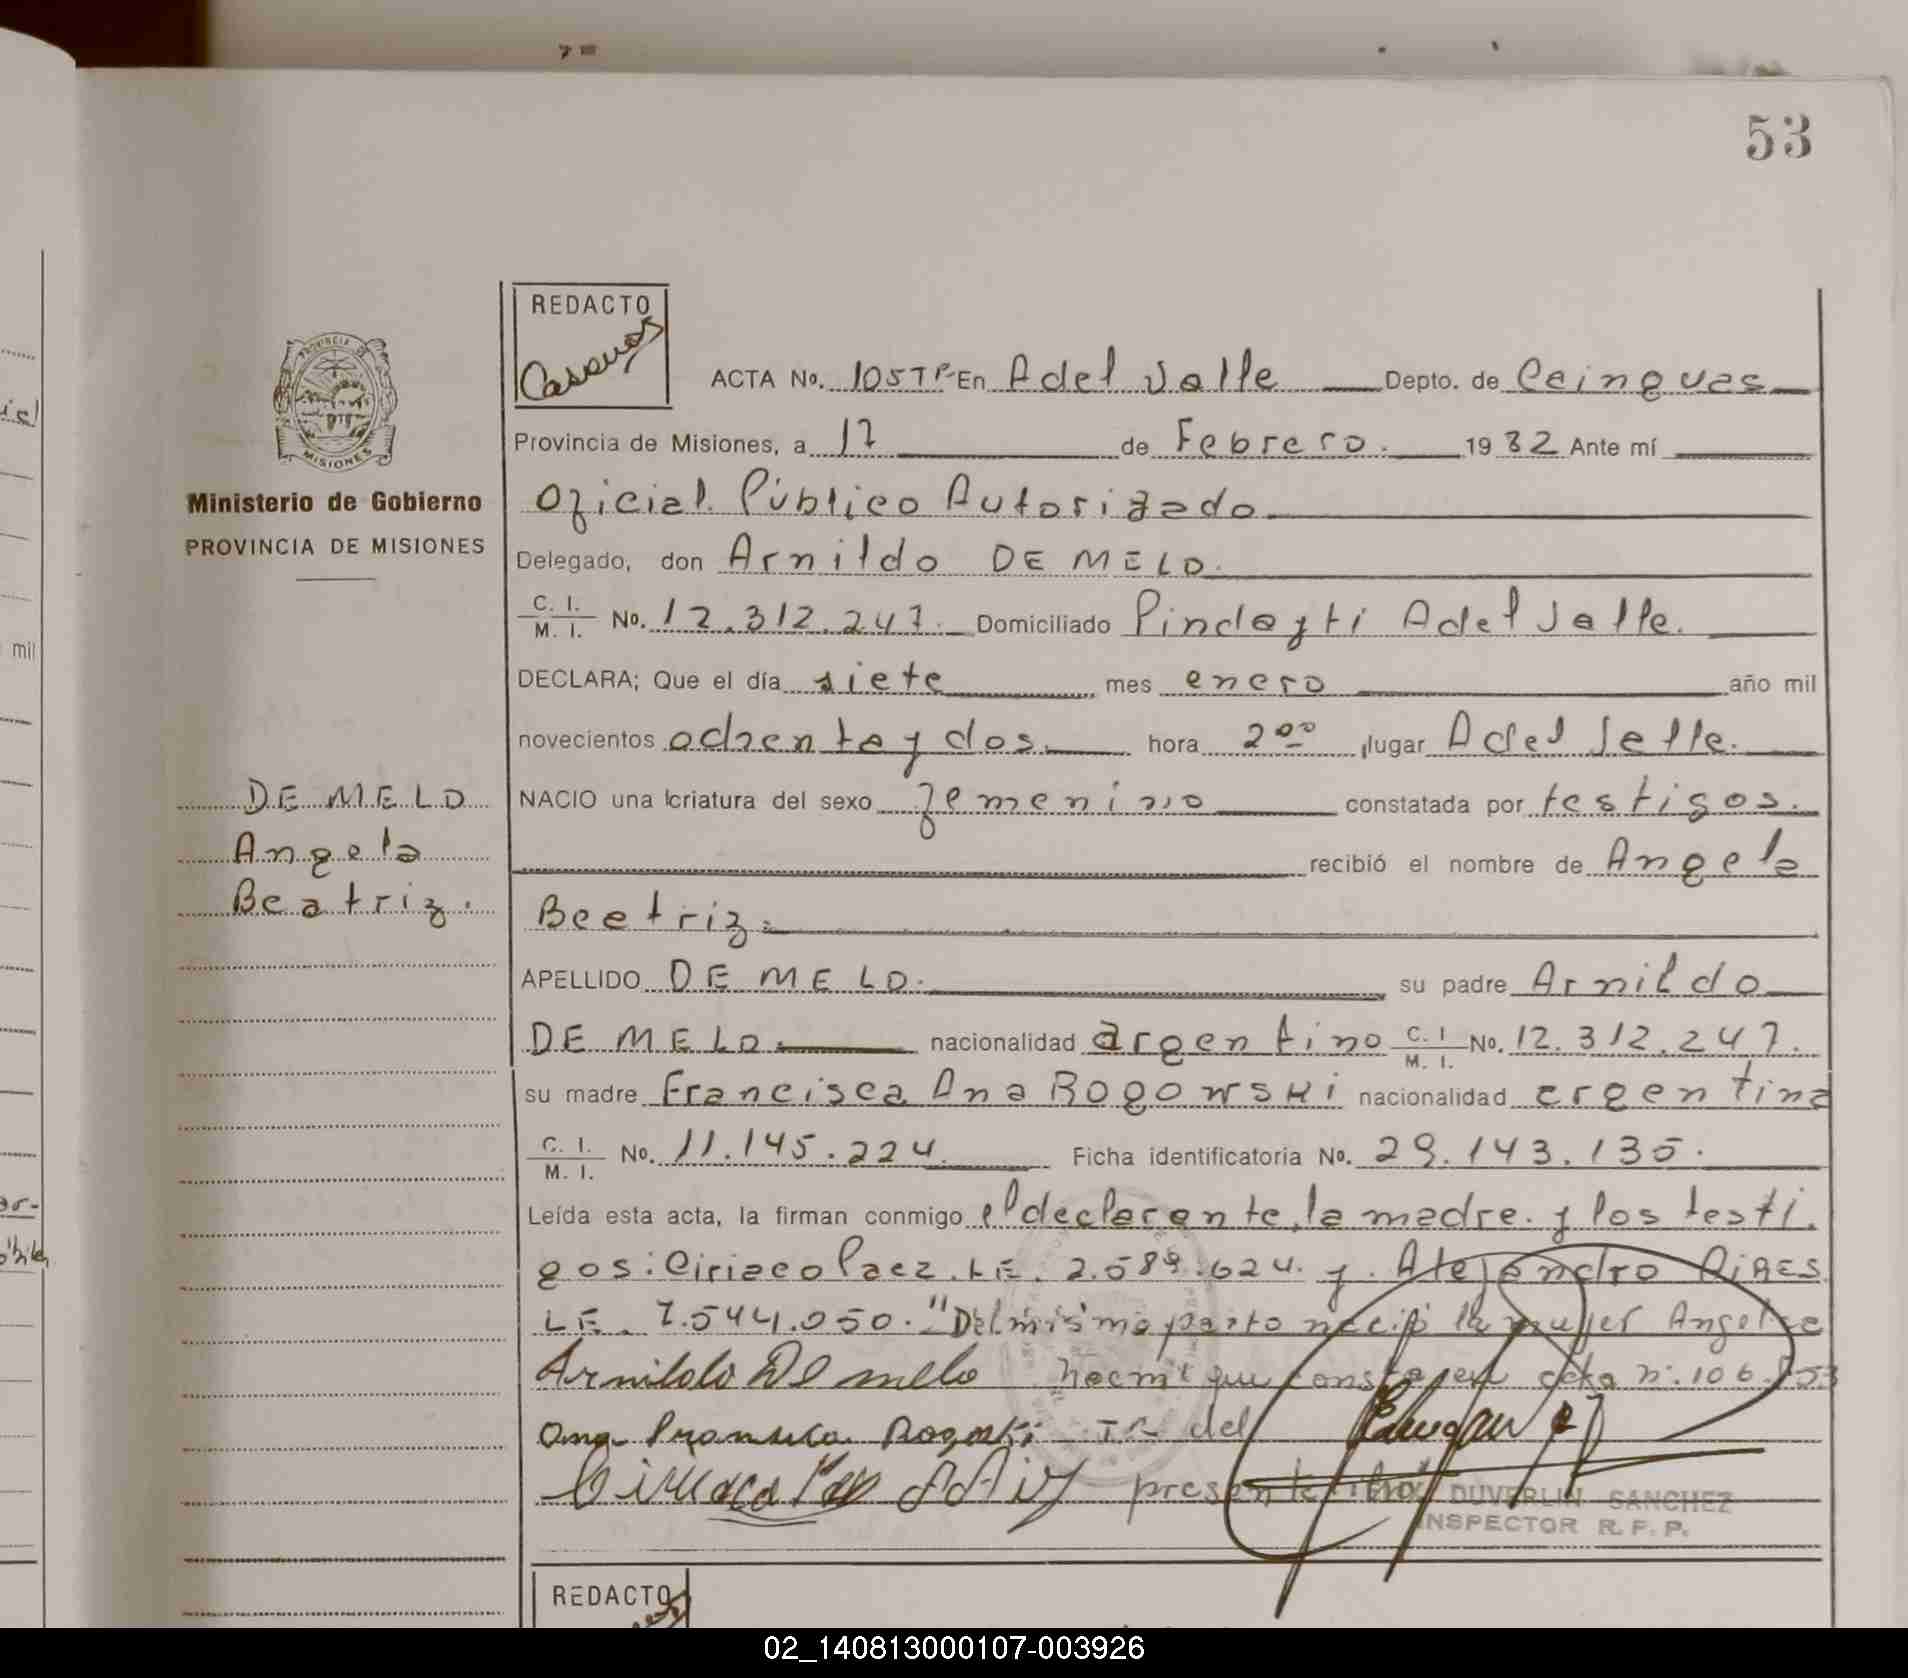 53
REDACTO
ACTA No. 105 Tº En A del Valle Depto. de Cainguas
Provincia de Misiones, a 17 de Febrero. 1982 Ante mí
PROVINCIA DE
MISIONES
Ministerio de Gobierno
PROVINCIA DE MISIONES
Oficial Público Autorizado
Delegado, don Arnildo DE MELO.
C. I. / M. I. No. 12.312.247. Domiciliado Pindayti A del Valle.
DECLARA; Que el día siete mes enero año mil
novecientos ochenta y dos hora 2 00 lugar A del Valle.
DE MELO
Angela
Beatriz.
NACIO una criatura del sexo femenino constatada por testigos.
recibió el nombre de Angela
Beatriz.
APELLIDO DE MELO. su padre Arnildo
DE MELO. nacionalidad argentino C. I / M. I. No. 12.312.247.
su madre Francisca Ana ROGOWSKI nacionalidad argentina
C. I. / M. I. No. 11.145.224. Ficha identificatoria No. 29.143.135.
Leída esta acta, la firman conmigo el declarante, la madre. y los testi
gos: Ciriaco Paez. LE. 2.589.624. y. Alejandro AIRES
LE. 7.544.050. "Del mismo parto nació la mujer
Arnildo De melo que consta en acta nº. 106 F 53
Ana Fransisca Rogoski Tº del
presente libro
DUVERLIN SANCHEZ
INSPECTOR R. F. P.
REDACTO
mil
02_140813000107-003926